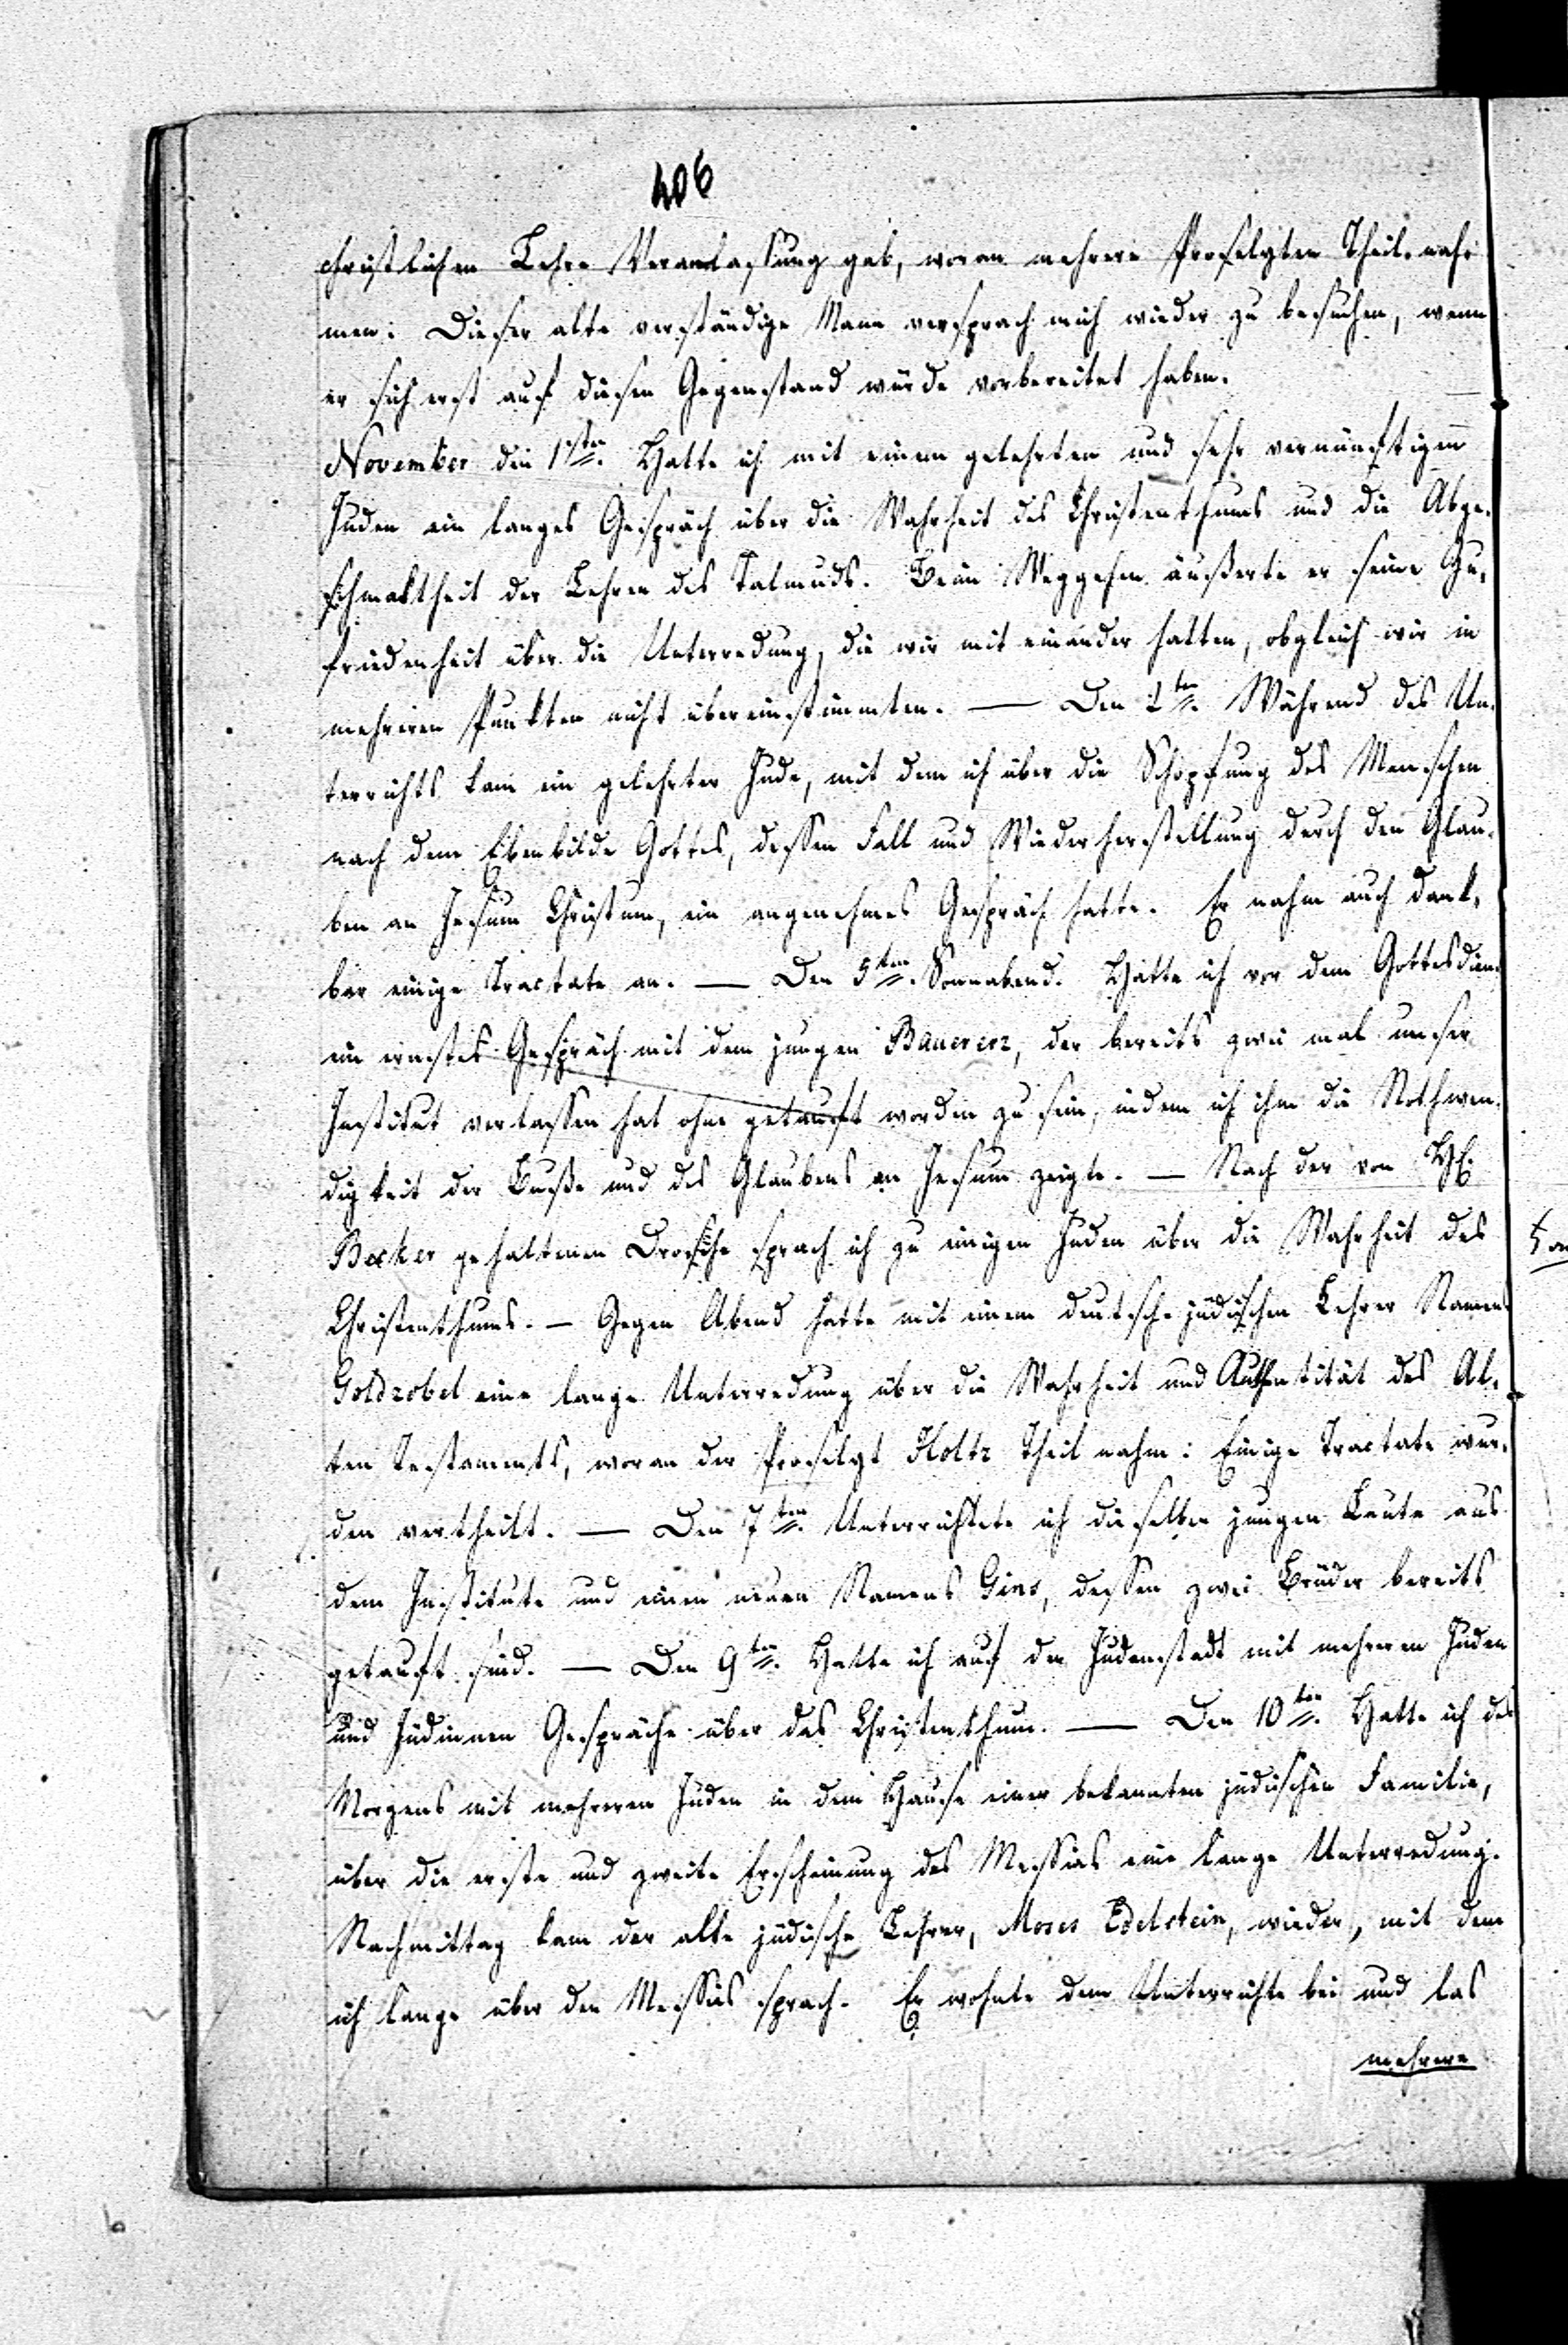 406
christlichen Lehre Veranlassung gab, woran mehrere Proselyten Theil nah-
men: Dieser alte verständige Mann versprach mich wieder zu besuchen, wenn
er sich erst auf diesen Gegenstand würde vorbereitet haben.
November den 1sten. Hatte ich mit einem gelehrten und sehr vernünftigen
Juden ein langes Gespräch über die Wahrheit des Christenthums und die Abge-
schmaktheit der Lehren des Talmuds. Beim Weggehen äußerte er seine Zu-
friedenheit über die Unterredung, die wir mit einander hatten, obgleich wir in
mehreren Punkten nicht übereinstimmten. — Den ten. Während des Un-
terrichts kam ein gelehrter Jude, mit dem ich über die Schöpfung des Menschen
nach dem Ebenbilde Gottes, dessen Fall und Wiederherstellung durch den Glau-
ben an Jesum Christum, ein angenehmes Gespräch hatte. Er nahm auch dank-
bar einige Tractate an. — Den 5ten. Sonnabend. Hatte ich vor dem Gottesdien
ein ernstes Gespräch mit dem jungen Bauererz, der bereits zwei mal unser
Institut verlassen hat ohne getauft worden zu sein, indem ich ihm die Nothwen-
digkeit der Buße und des Glaubens an Jesum zeigte. — Nach der von H.
Becker gehaltenen Drosche sprach ich zu einigen Juden über die Wahrheit des
Christenthums. — Gegen Abend hatte mit einem deutsch-jüdischen Lehrer Namens
Goldzobel eine lange Unterredung über die Wahrheit und Authentität des Al-
ten Testaments, woran der Proselyt Holtz Theil nahm: Einige Tractate wur-
den vertheilt. — Den 7ten. Unterrichtete ich dieselben jungen Leute aus
dem Institute und einen neuen Namens Gins, dessen zwei Brüder bereits
getauft sind. — Den 9ten. Hatte ich auf der Judenstadt mit mehreren Juden
und Jüdinnen Gespräche über das Christenthum. — Den 10ten. Hatte ich des
Morgens mit mehreren Juden in dem Hause einer bekannten jüdischen Familie,
über die erste und zweite Erscheinung des Messias eine lange Unterredung.
Nachmittag kam der alte jüdische Lehrer, Moses Edelstein, wieder, mit dem
ich lange über den Messias sprach. Er wohnte dem Unterrichte bei und las
mehrere